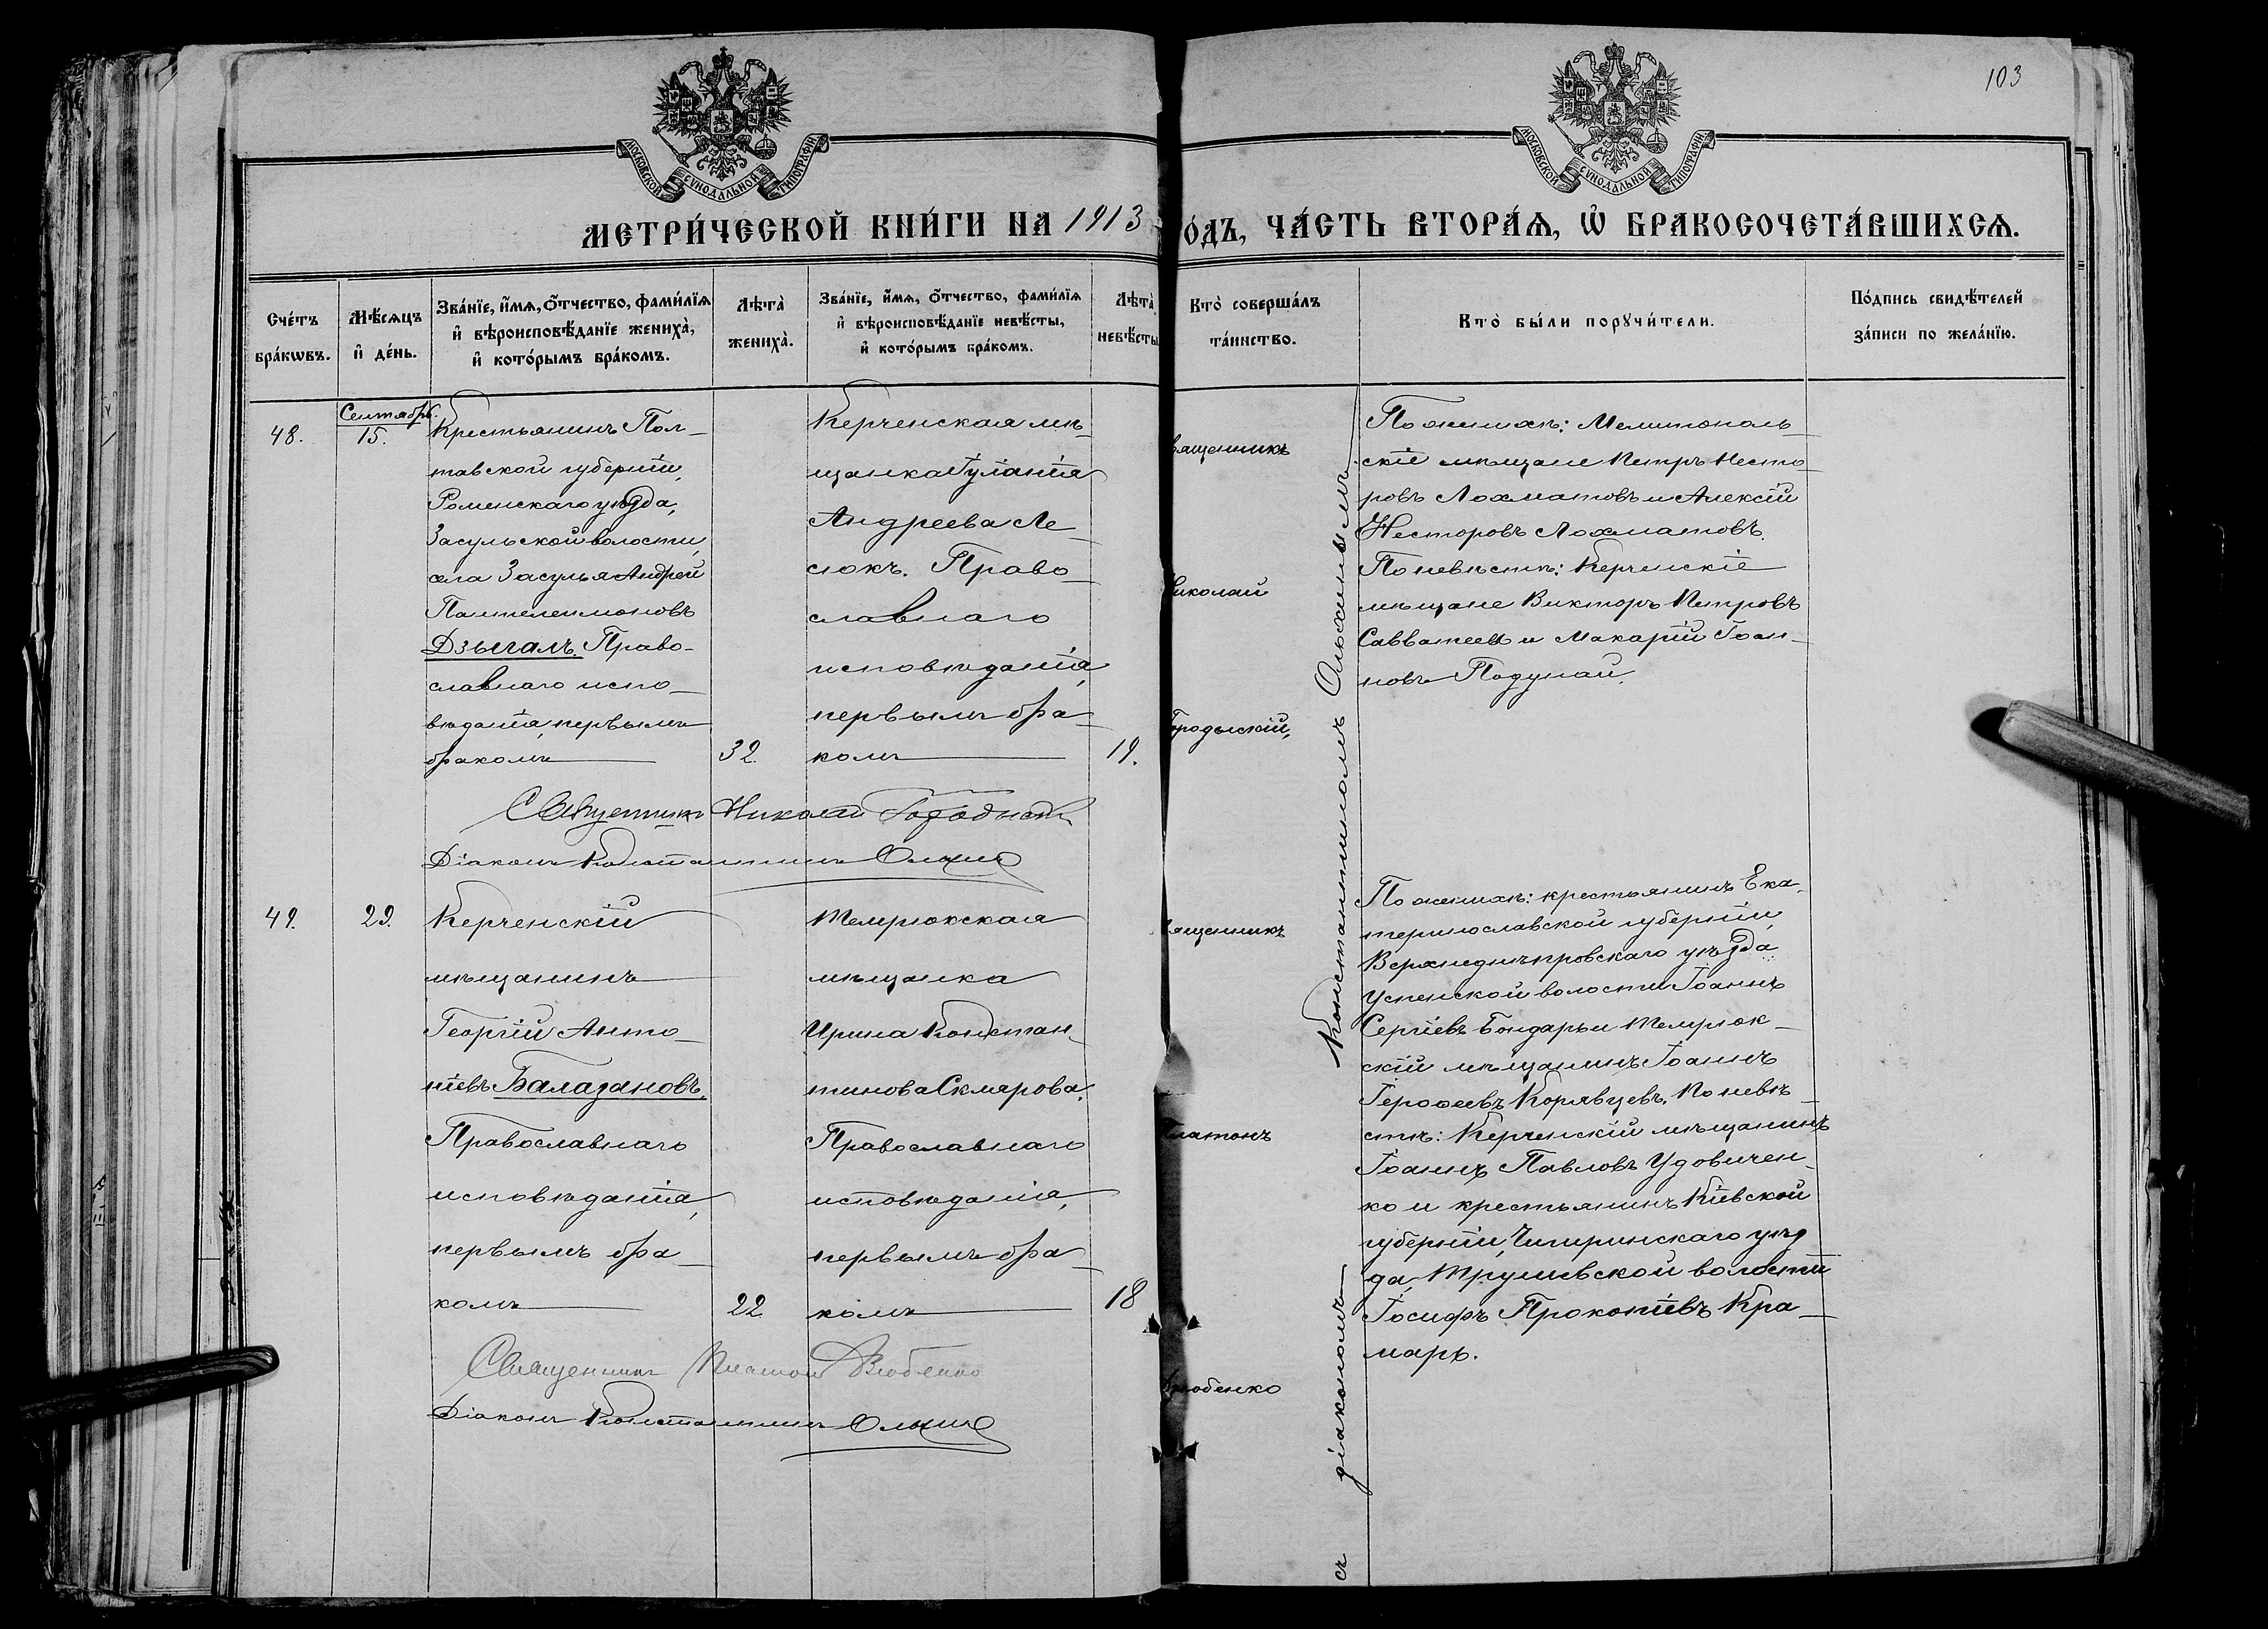 103
МОСКОВСКОЙ СѴНОДАЛЬНОЙ ТИПОГРАФІИ
МОСКОВСКОЙ СѴНОДАЛЬНОЙ ТИПОГРАФІИ
МЕТРИ́ЧЕСКОЙ КНИ́ГИ НА 1913 О́ДЪ, ЧА́СТЬ ВТОРА́Ѧ, Ѡ҆ БРАКОСОЧЕТА́ВШИХСѦ.
Сче́тъ
бра́кѡвъ.
Мѣ́сѧцъ
и҆ де́нь.
Зва́нїе, и҆́мѧ, ѻ҆́тчество, фами́лїѧ
и҆ вѣроисповѣ́данїе жениха̀,
и҆ кото́рымъ бра́комъ.
Лѣта̀
жениха̀.
Зва́нїе, и҆́мѧ, ѻ҆́тчество, фами́лїѧ
и҆ вѣроисповѣ́данїе невѣ́сты,
и҆ кото́рымъ бра́комъ.
Лѣта̀
невѣ́сты
Кто̀ соверша́лъ
та́инство.
Кто̀ бы́ли порꙋчи́тели.
По́дпись свидѣ́телей
за́писи по жела́нїю.
48.
Сентябрь.
15.
Крестьянинъ Пол-
тавской губерніи,
Роменскаго уѣзда,
Засульской волости,
села Засулья Андрей
Пантелеимоновъ
Дзыгалъ. Право-
славнаго испо-
вѣданія, первымъ
бракомъ
32.
Керченская мѣ-
щанка Іуліанія
Андреева Ле-
сюкъ. Право-
славнаго
исповѣданія,
первымъ бра-
комъ
19.
вященникъ
Николай
Городыскій,
По женихѣ: Мелитополь-
скіе мѣщане Петръ Несто-
ровъ Лохматовъ и Алексій
Несторовъ Лохматовъ.
По невѣстѣ: Керченскіе
мѣщане Викторъ Петровъ
Савватеевъ и Макарій Іоан-
новъ Подунай.
Священникъ Николай
Діаконъ Константинъ
49.
29.
Керченскій
мѣщанинъ
Георгій Анто-
ніевъ Балазановъ.
Православнаго
исповѣданія,
первымъ бра-
комъ
22
Темрюкская
мѣщанка
Ирина Констан-
тинова Склярова.
Православнаго
исповѣданія,
первымъ бра-
комъ
18
ященникъ
Платонъ
По женихѣ: крестьянинъ Ека-
теринославской губерніи,
Верхнеднѣпровскаго уѣзда
Успенской волости Іоаннъ
Сергіевъ Бондарь и Темрюк-
скій мѣщанинъ Іоаннъ
Іерофеевъ Корявцевъ. По невѣ-
стѣ: Керченскій мѣщанинъ
Іоаннъ Павловъ Удовичен-
ко и крестьянинъ Кіевской
губерніи, Чигиринскаго уѣз
да, Трушевской волости
Іосифъ Прокопіевъ Кра-
марь.
Священникъ Платон
Діаконъ Константинъ
съ діакономъ Константиномъ